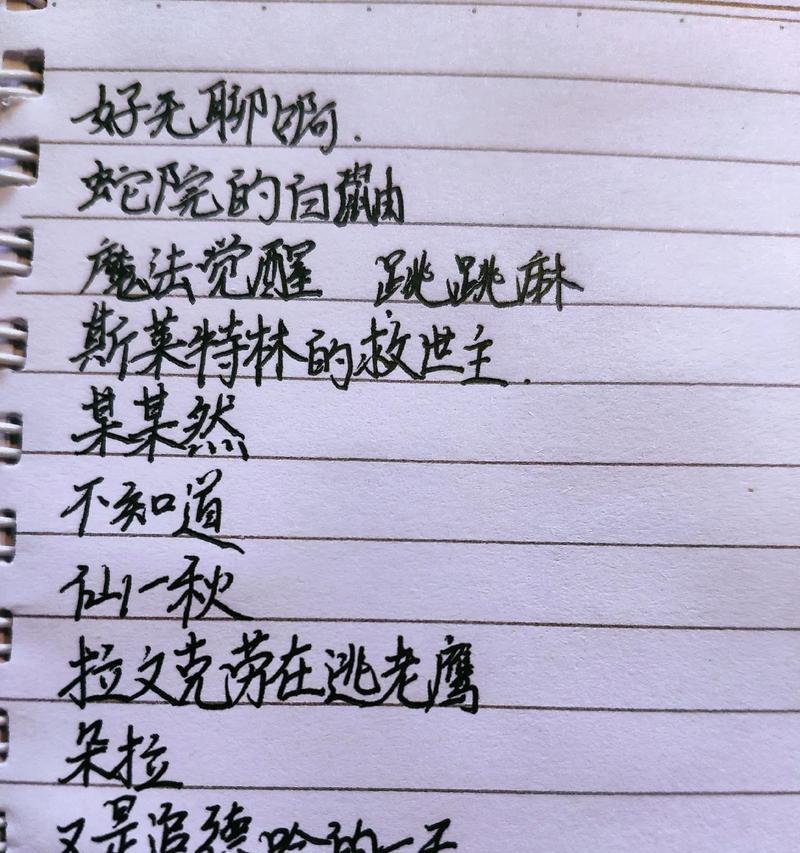 好无聊啊.
蛇院的白鼬
魔法觉醒 跳跳麻
斯莱特林的救世主.
某某然
不知道
仙一秋
拉文克劳在逃老鹰
朵拉
又是追德哈的一天